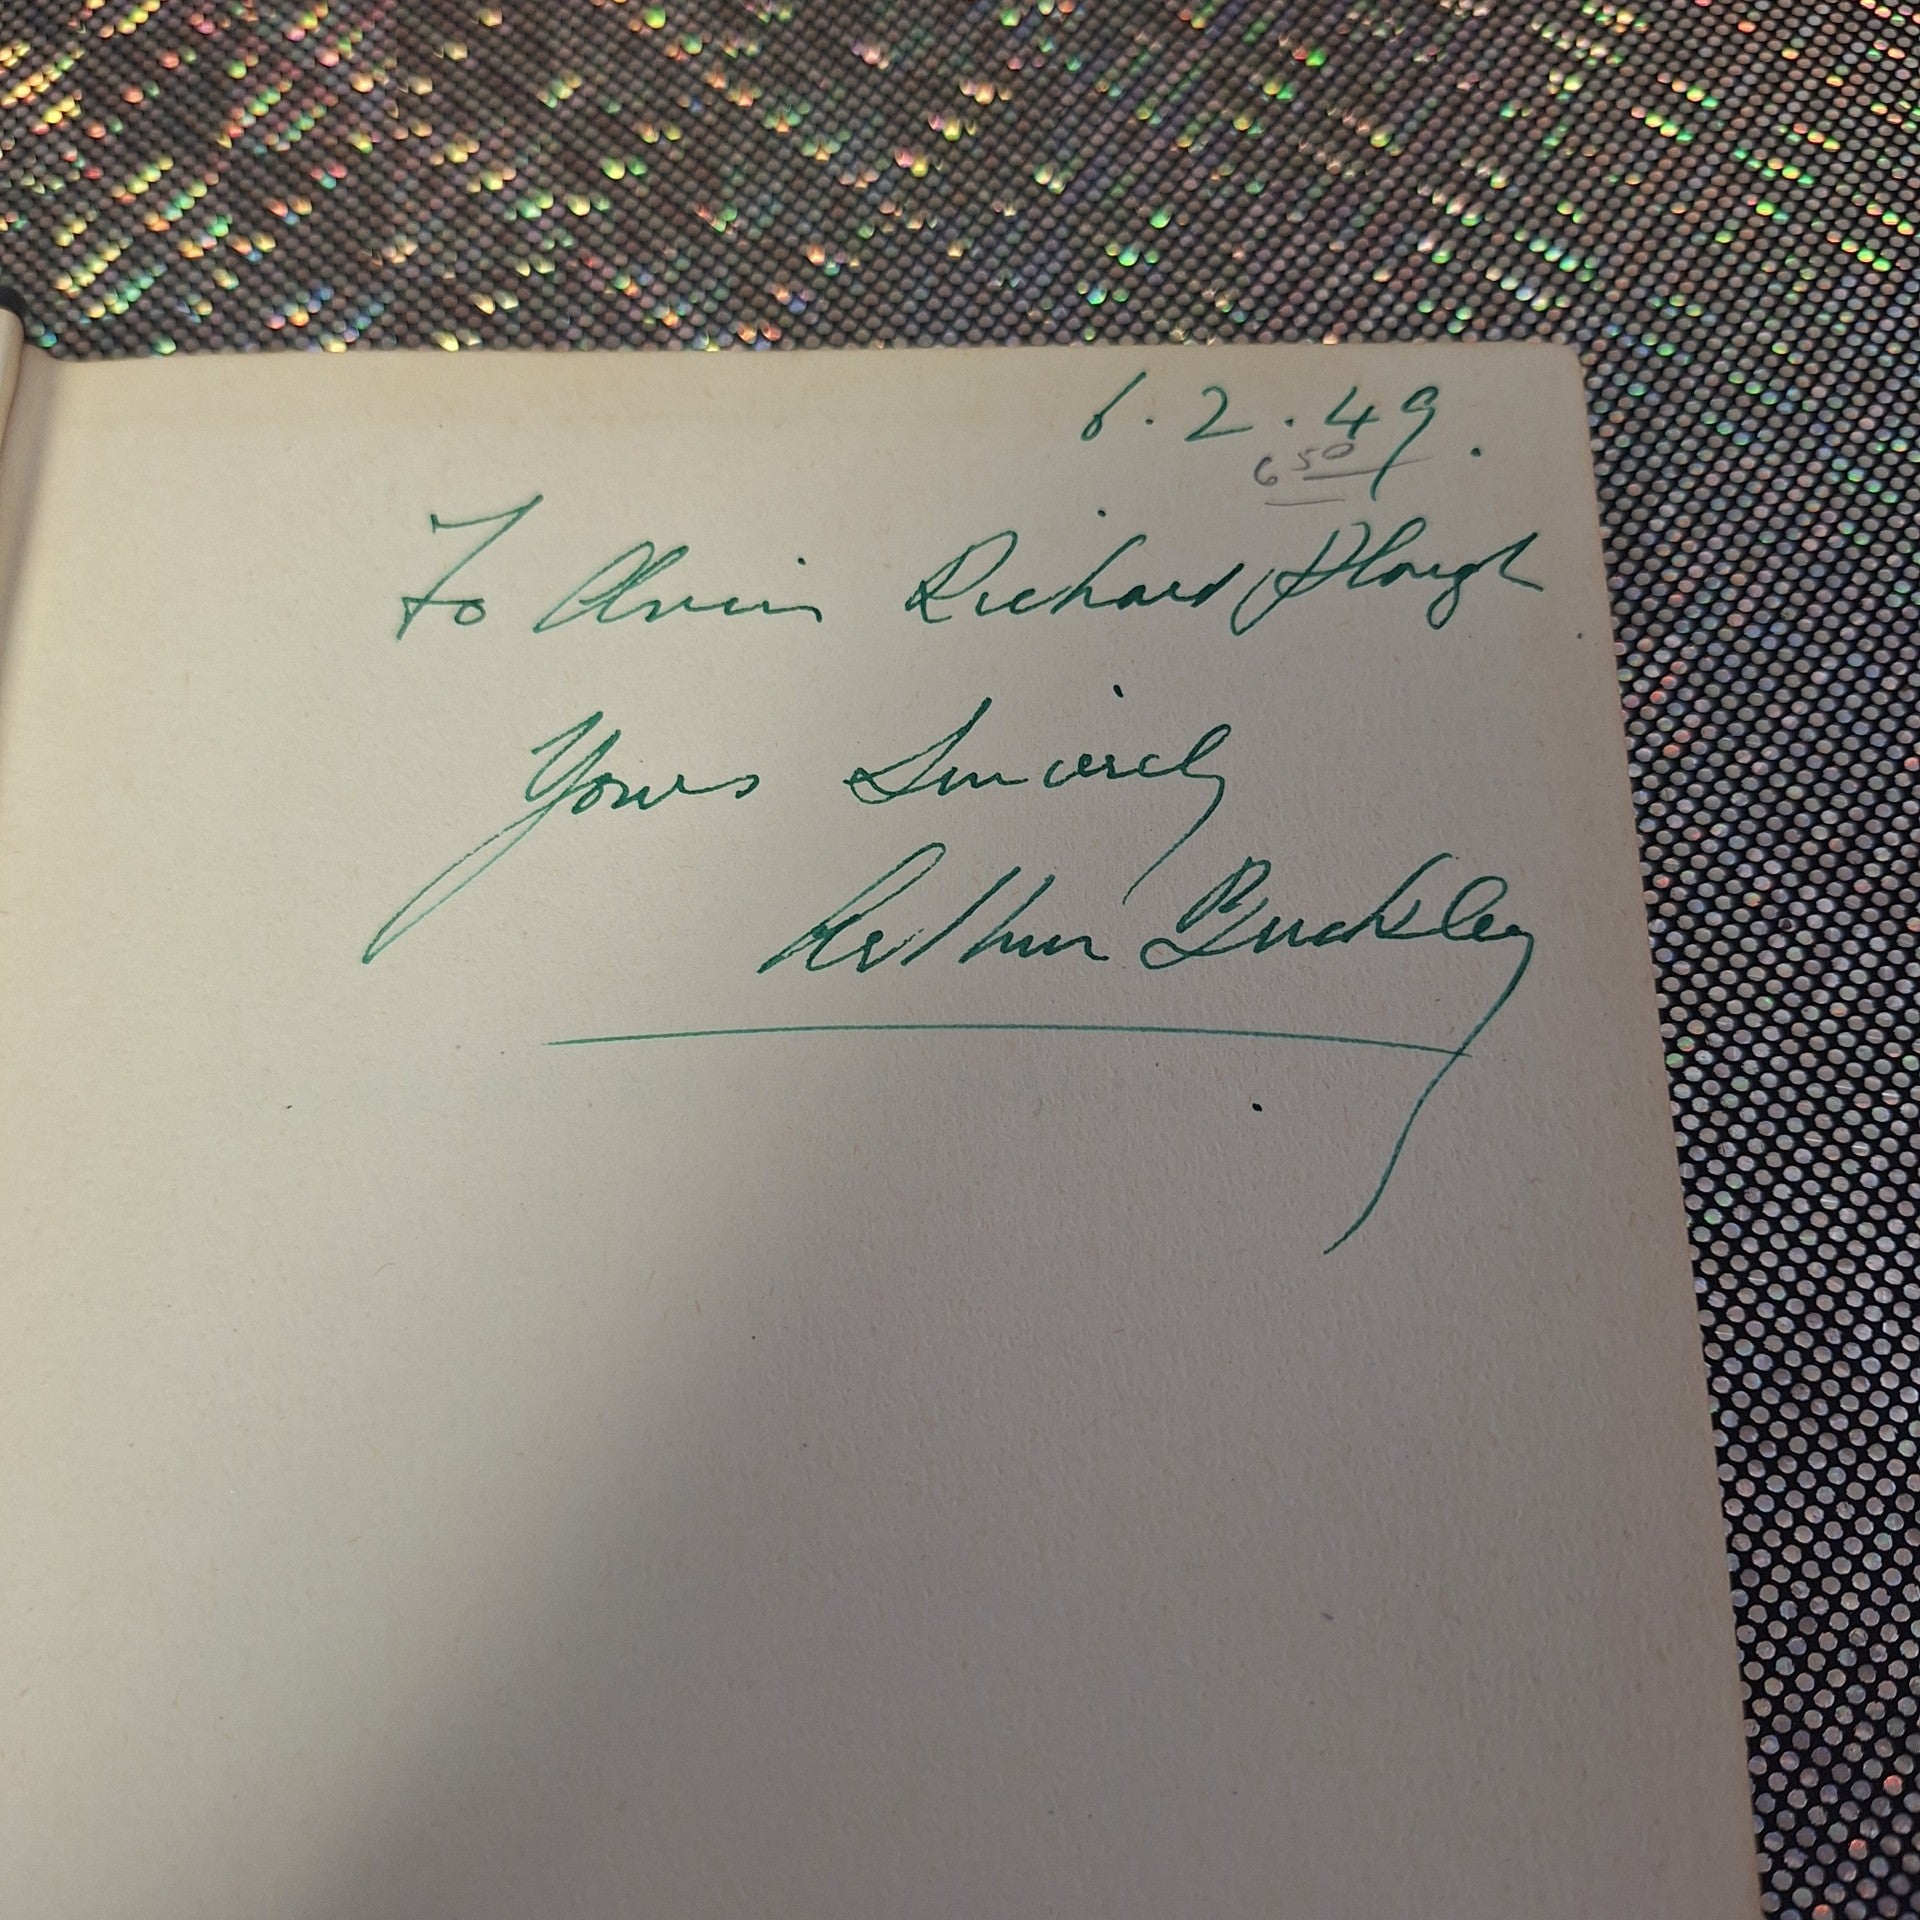 6.2.49.
6 50
To Alvin Richard Plough
Yours Sincerely
Arthur Buckley